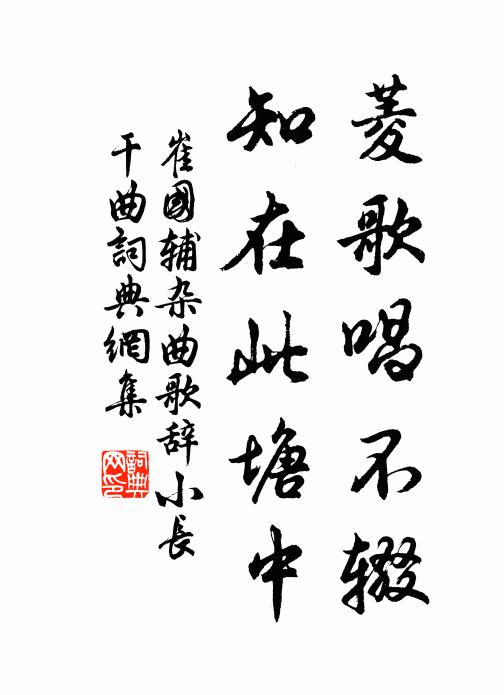 菱歌唱不辍
知在此塘中
崔國辅杂曲歌辞小長
干曲詞典網集
詞典
网印